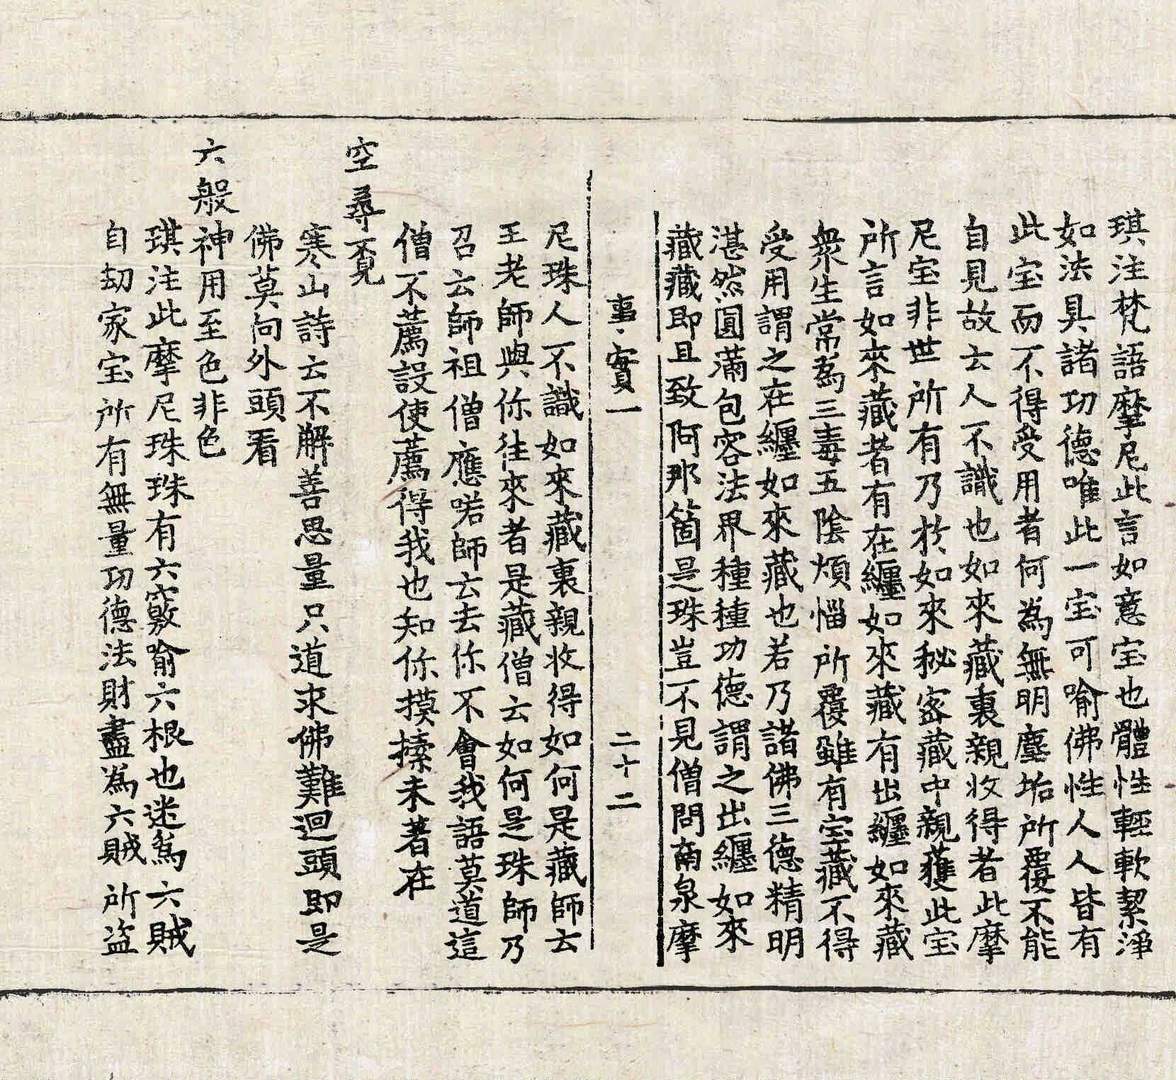 琪注梵語摩尼此言如意宝也體性輕軟絜淨
如法具諸功德唯此一宝可喻佛性人人皆有
此宝而不得受用者何為無明塵垢所覆不能
自見故云人不識也如來藏裏親收得者此摩
尼宝非世所有乃於如來秘宻藏中親獲此宝
所言如來藏者有在纏如來藏有出纏如來藏
衆生常為三毒五陰煩惱所覆雖有宝藏不得
受用謂之在纏如來藏也若乃諸佛三德精明
湛然圓滿包容法界種種功德謂之出纏如來
藏藏即且致阿那箇是珠豈不見僧問南泉摩
事實一 二十二
尼珠人不識如來藏裏親收得如何是藏師云
王老師與你往來者是藏僧云如何是珠師乃
召云師祖僧應喏師云去你不會我語莫道這
僧不薦設使薦得我也知你摸搽未著在
空尋不覓
寒山詩云不解善思量只道求佛難迴頭即是
佛莫向外頭看
六般神用至色非色
琪注此摩尼珠珠有六竅喻六根也迷為六賊
自劫家宝所有無量功德法財盡為六賊所盜